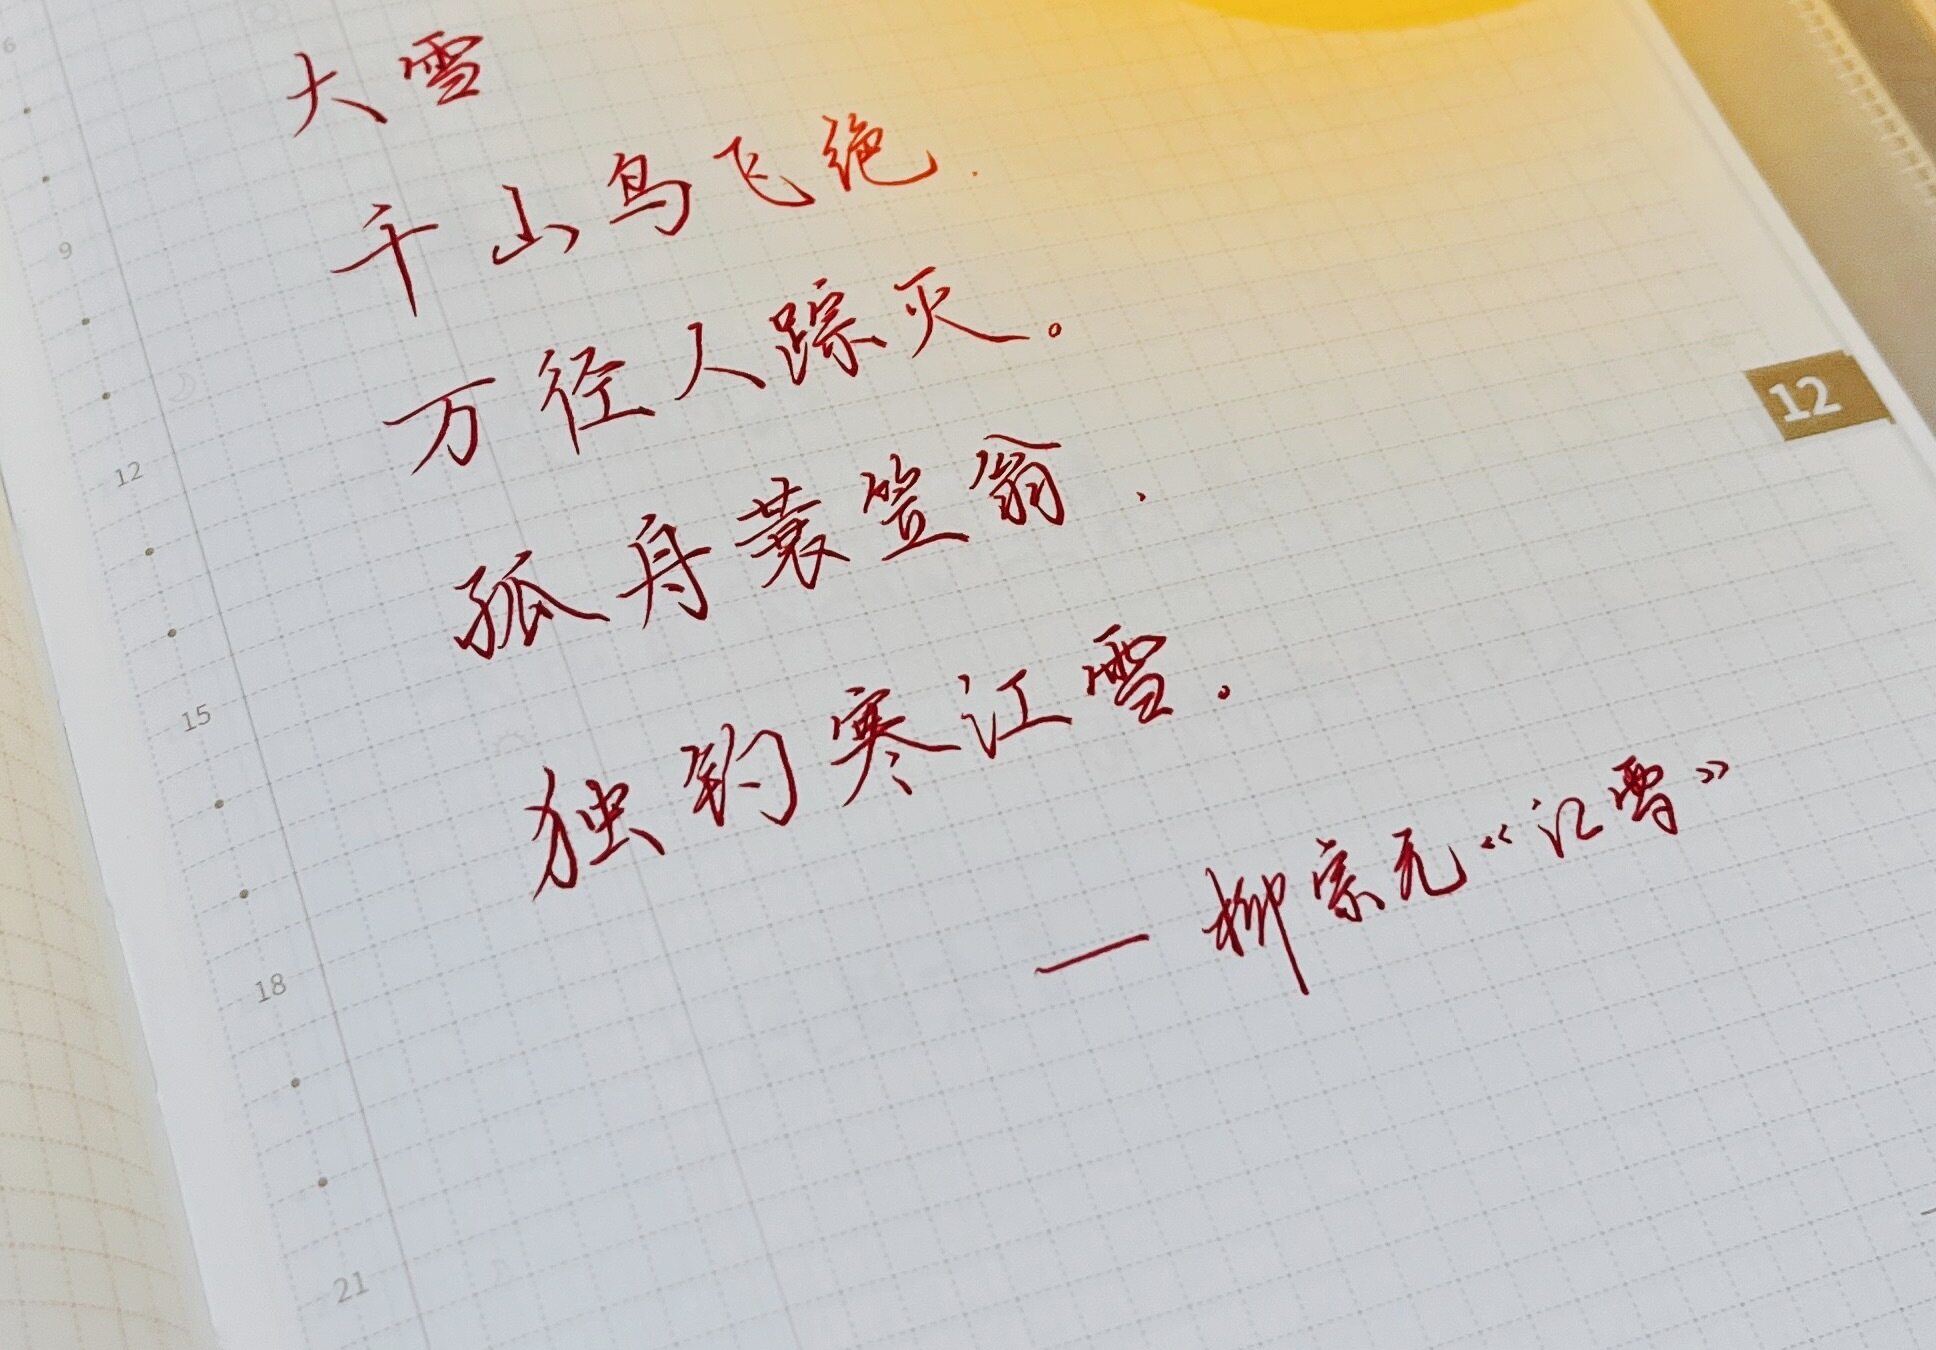 6
大雪
千山鸟飞绝.
9
万径人踪灭。
12
12
孤舟蓑笠翁.
15
独钓寒江雪。
—柳宗元《江雪》
18
21